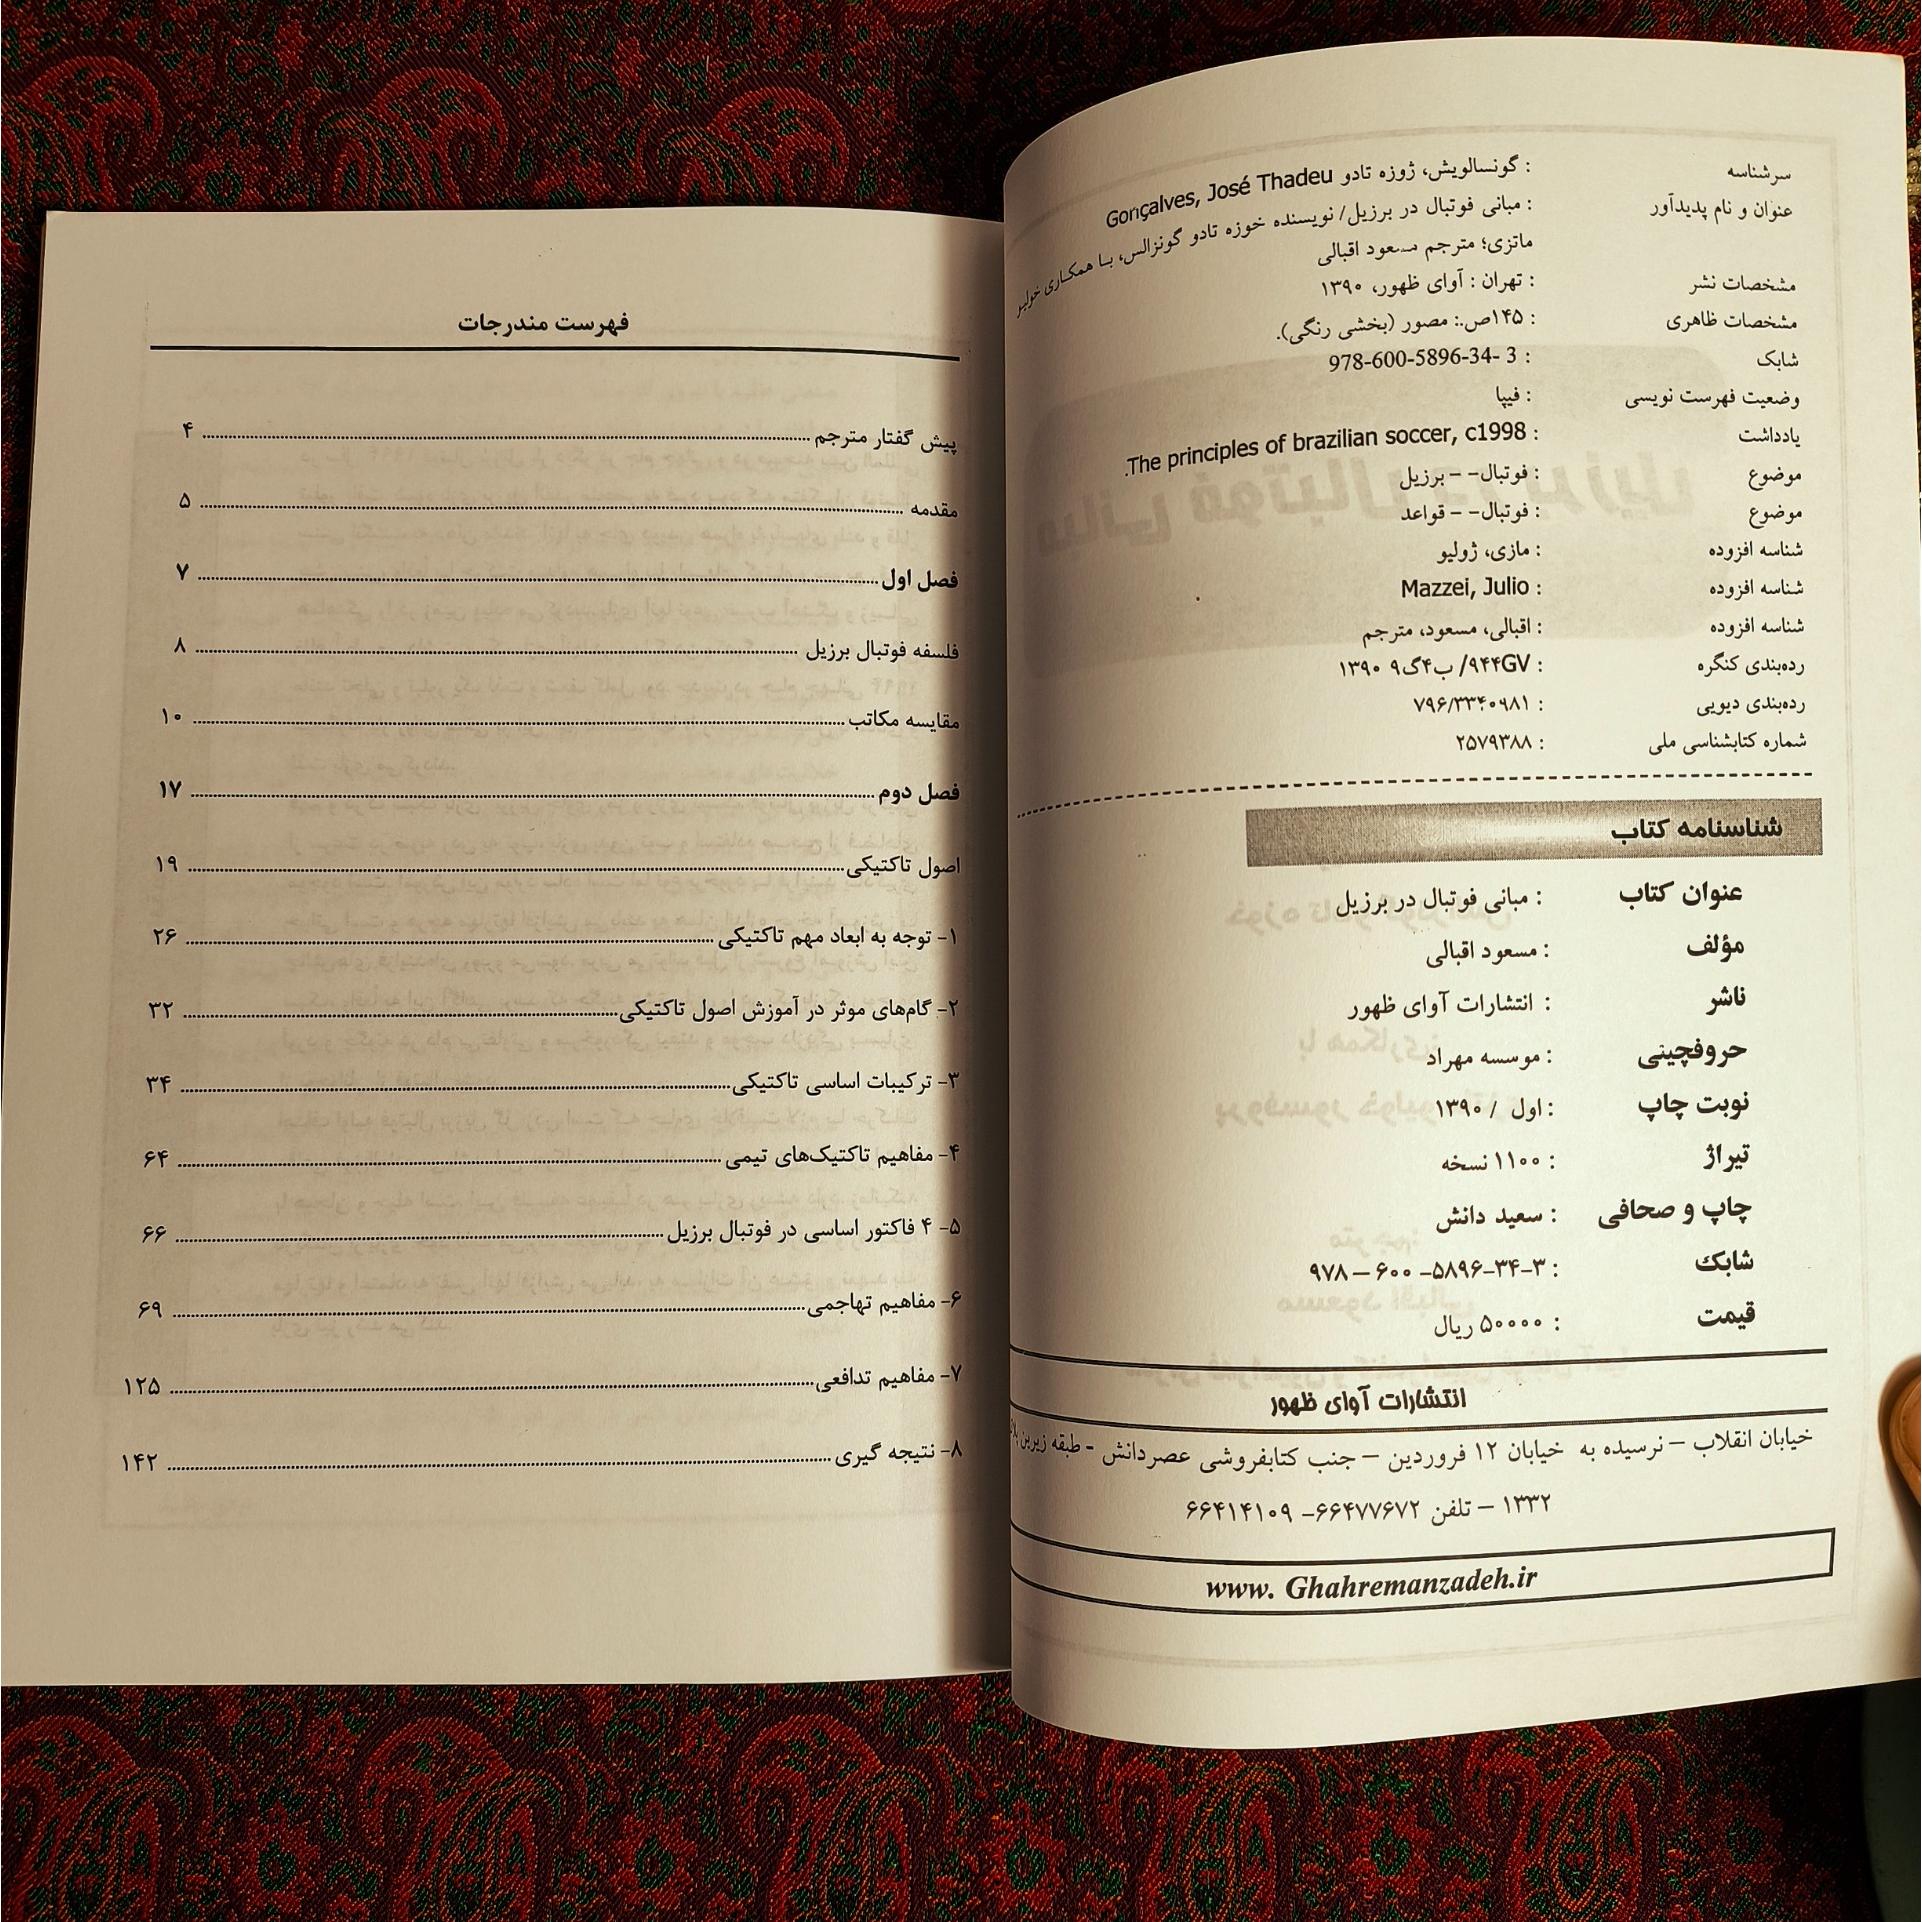 سرشناسه : گونسالویش، ژوزه تادو Gonçalves, José Thadeu
عنوان و نام پدیدآور : مبانی فوتبال در برزیل/ نویسنده خوزه تادو گونزالس، با همکاری خولیو
ماتزی؛ مترجم مسعود اقبالی
مشخصات نشر : تهران : آوای ظهور، ۱۳۹۰
مشخصات ظاهری : ۱۴۵ص.: مصور (بخشی رنگی).
شابک : 978-600-5896-34- 3
وضعیت فهرست نویسی : فیپا
یادداشت : The principles of brazilian soccer, c1998.
موضوع : فوتبال- - برزیل
موضوع : فوتبال- - قواعد
شناسه افزوده : مازی، ژولیو
شناسه افزوده : Mazzei, Julio
شناسه افزوده : اقبالی، مسعود، مترجم
رده‌بندی کنگره : ۹۴۴GV/ ب۴گ۹ ۱۳۹۰
رده‌بندی دیویی : ۷۹۶/۳۳۴۰۹۸۱
شماره کتابشناسی ملی : ۲۵۷۹۳۸۸
شناسنامه کتاب
عنوان کتاب : مبانی فوتبال در برزیل
مؤلف : مسعود اقبالی
ناشر : انتشارات آوای ظهور
حروفچینی : موسسه مهراد
نوبت چاپ : اول / ۱۳۹۰
تیراژ : ۱۱۰۰ نسخه
چاپ و صحافی : سعید دانش
شابک : ۳-۳۴-۵۸۹۶- ۶۰۰ – ۹۷۸
قیمت : ۵۰۰۰۰ ریال
انتشارات آوای ظهور
خیابان انقلاب – نرسیده به خیابان ۱۲ فروردین – جنب کتابفروشی عصردانش - طبقه زیرین
۱۳۳۲ – تلفن ۶۶۴۷۷۶۷۲- ۶۶۴۱۴۱۰۹
www. Ghahremanzadeh.ir
فهرست مندرجات
پیش گفتار مترجم ........ ۴
مقدمه ........ ۵
فصل اول ........ ۷
فلسفه فوتبال برزیل ........ ۸
مقایسه مکاتب ........ ۱۰
فصل دوم ........ ۱۷
اصول تاکتیکی ........ ۱۹
۱- توجه به ابعاد مهم تاکتیکی ........ ۲۶
۲- گام‌های موثر در آموزش اصول تاکتیکی ........ ۳۲
۳- ترکیبات اساسی تاکتیکی ........ ۳۴
۴- مفاهیم تاکتیک‌های تیمی ........ ۶۴
۵- ۴ فاکتور اساسی در فوتبال برزیل ........ ۶۶
۶- مفاهیم تهاجمی ........ ۶۹
۷- مفاهیم تدافعی ........ ۱۲۵
۸- نتیجه گیری ........ ۱۴۲